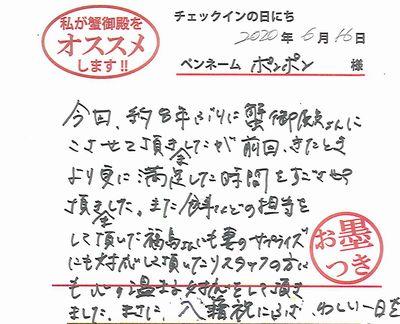 私が蟹御殿を
オススメ
します!!
チェックインの日にち
2020年6月16日
ペンネーム ポンポン 様
今回、約8年ぶりに蟹御殿さんに
こさせて頂きましたが前回、きたとき
より更に満足した時間をすごさせて
頂きました。また食事などの担当を
して頂いた福島さんにも妻のサプライズ
にも対応して頂いたりスタッフの方に
も心の温まる対応をして頂き
ました。まさに、入籍祝にふさわしい一日を
お墨つき